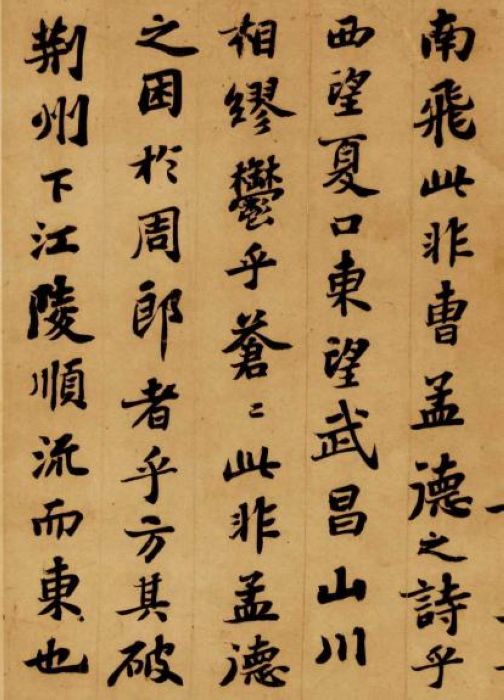 南飛此非曹孟德之詩乎
西望夏口東望武昌山川
相繆鬱乎蒼〻此非孟德
之困於周郎者乎方其破
荊州下江陵順流而東也